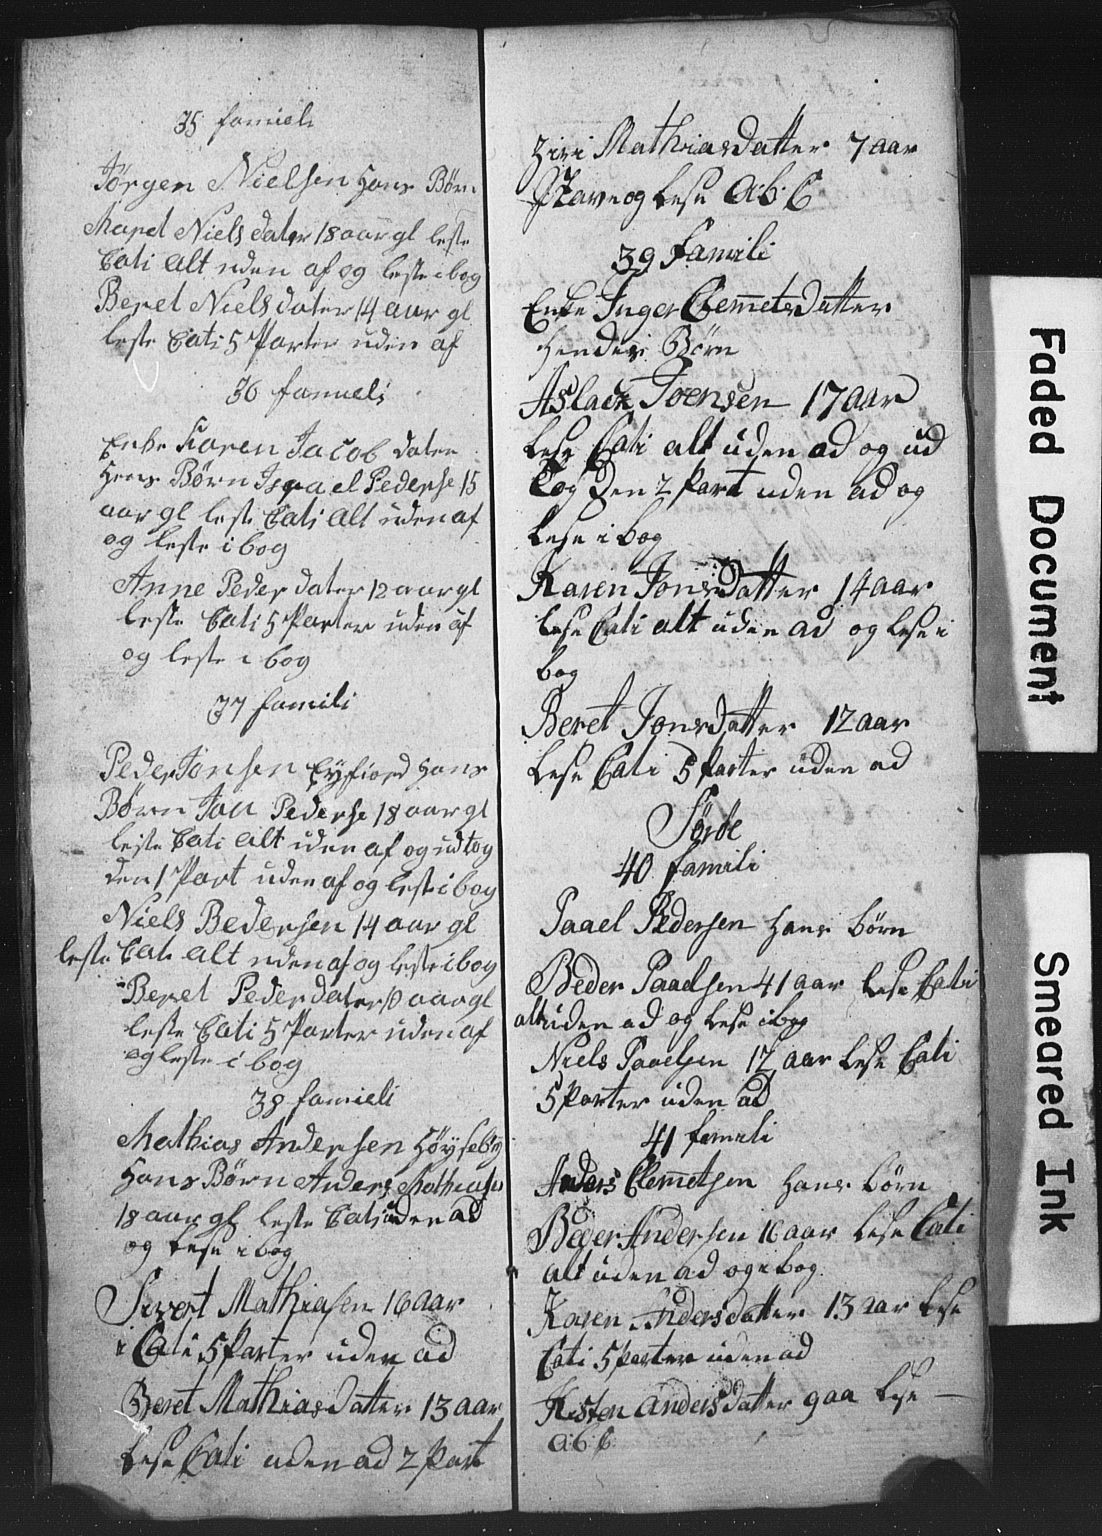 35 famieli
Jörgen Nielsen Hans Børn
Maret Niels dater 18 aar gl leste
Cati alt uden af og leste i bog
Beret Niels dater 14 aar gl
leste Cati 5 Parter uden af
36 famieli
Enke Karen Jacob dater
Hens Børn Israel Pederse 15
aar gl leste Cati alt uden af
og leste i bog
Anne Peder dater 12 aar gl
leste Cati 5 Parter uden af
og leste i bog
37 famili
Peder Jonsen Eyfiord Hans
Børn Jon Pederse 18 aar gl
leste Cati alt uden af og ud tog
den 1 Part uden af og leste i bog
Niels Bedersen 14 aar gl
leste Cati alt uden af og leste i bog
Beret Peder dater aar gl
leste Cati 5 Parter uden af
og leste i bog
38 famieli
Mathias Andersen Høyseby
Hans Børn Anders Mathiasen
18 aar gl leste Cati uden ad
og lese i bog
Sivert Mathiasen 16 aar
i Cati 5 Parter uden ad
Beret Mathiasdatter 13 aar
lese Cati uden ad 2 Part
Ziri Mathiasdatter 7 aar
Stave og lese abc
39 famili
Enke Inger Clemmetsdatter
Hendes Børn
Aslack Joensen 17 aar
lese Cati alt uden ad og ud
tog den 2 Part uden ad og
lese i bog
Karen Jonsdatter 14 aar
lese Cati alt uden ad og lese i
bog
Beret Jonsdatter 12 aar
lese Cati 5 Parter uden ad
40 famili
Paael Pedersen Hans børn
Beder Paaelsen 41 aar lese Cati
alt uden ad og lese i bog
Niels Paaelsen 12 aar lese Cati
5 Parter uden ad
41 famili
Anders Clemmetsen Hans børn
Beder Andersen 16 aar lese Cati
alt uden ad og i bog
Karen Andersdatter 13 aar lese
Cati 5 Parter uden ad
Kisten Andersdatter 9 aa lese
abc
Faded Document
Smeared Ink